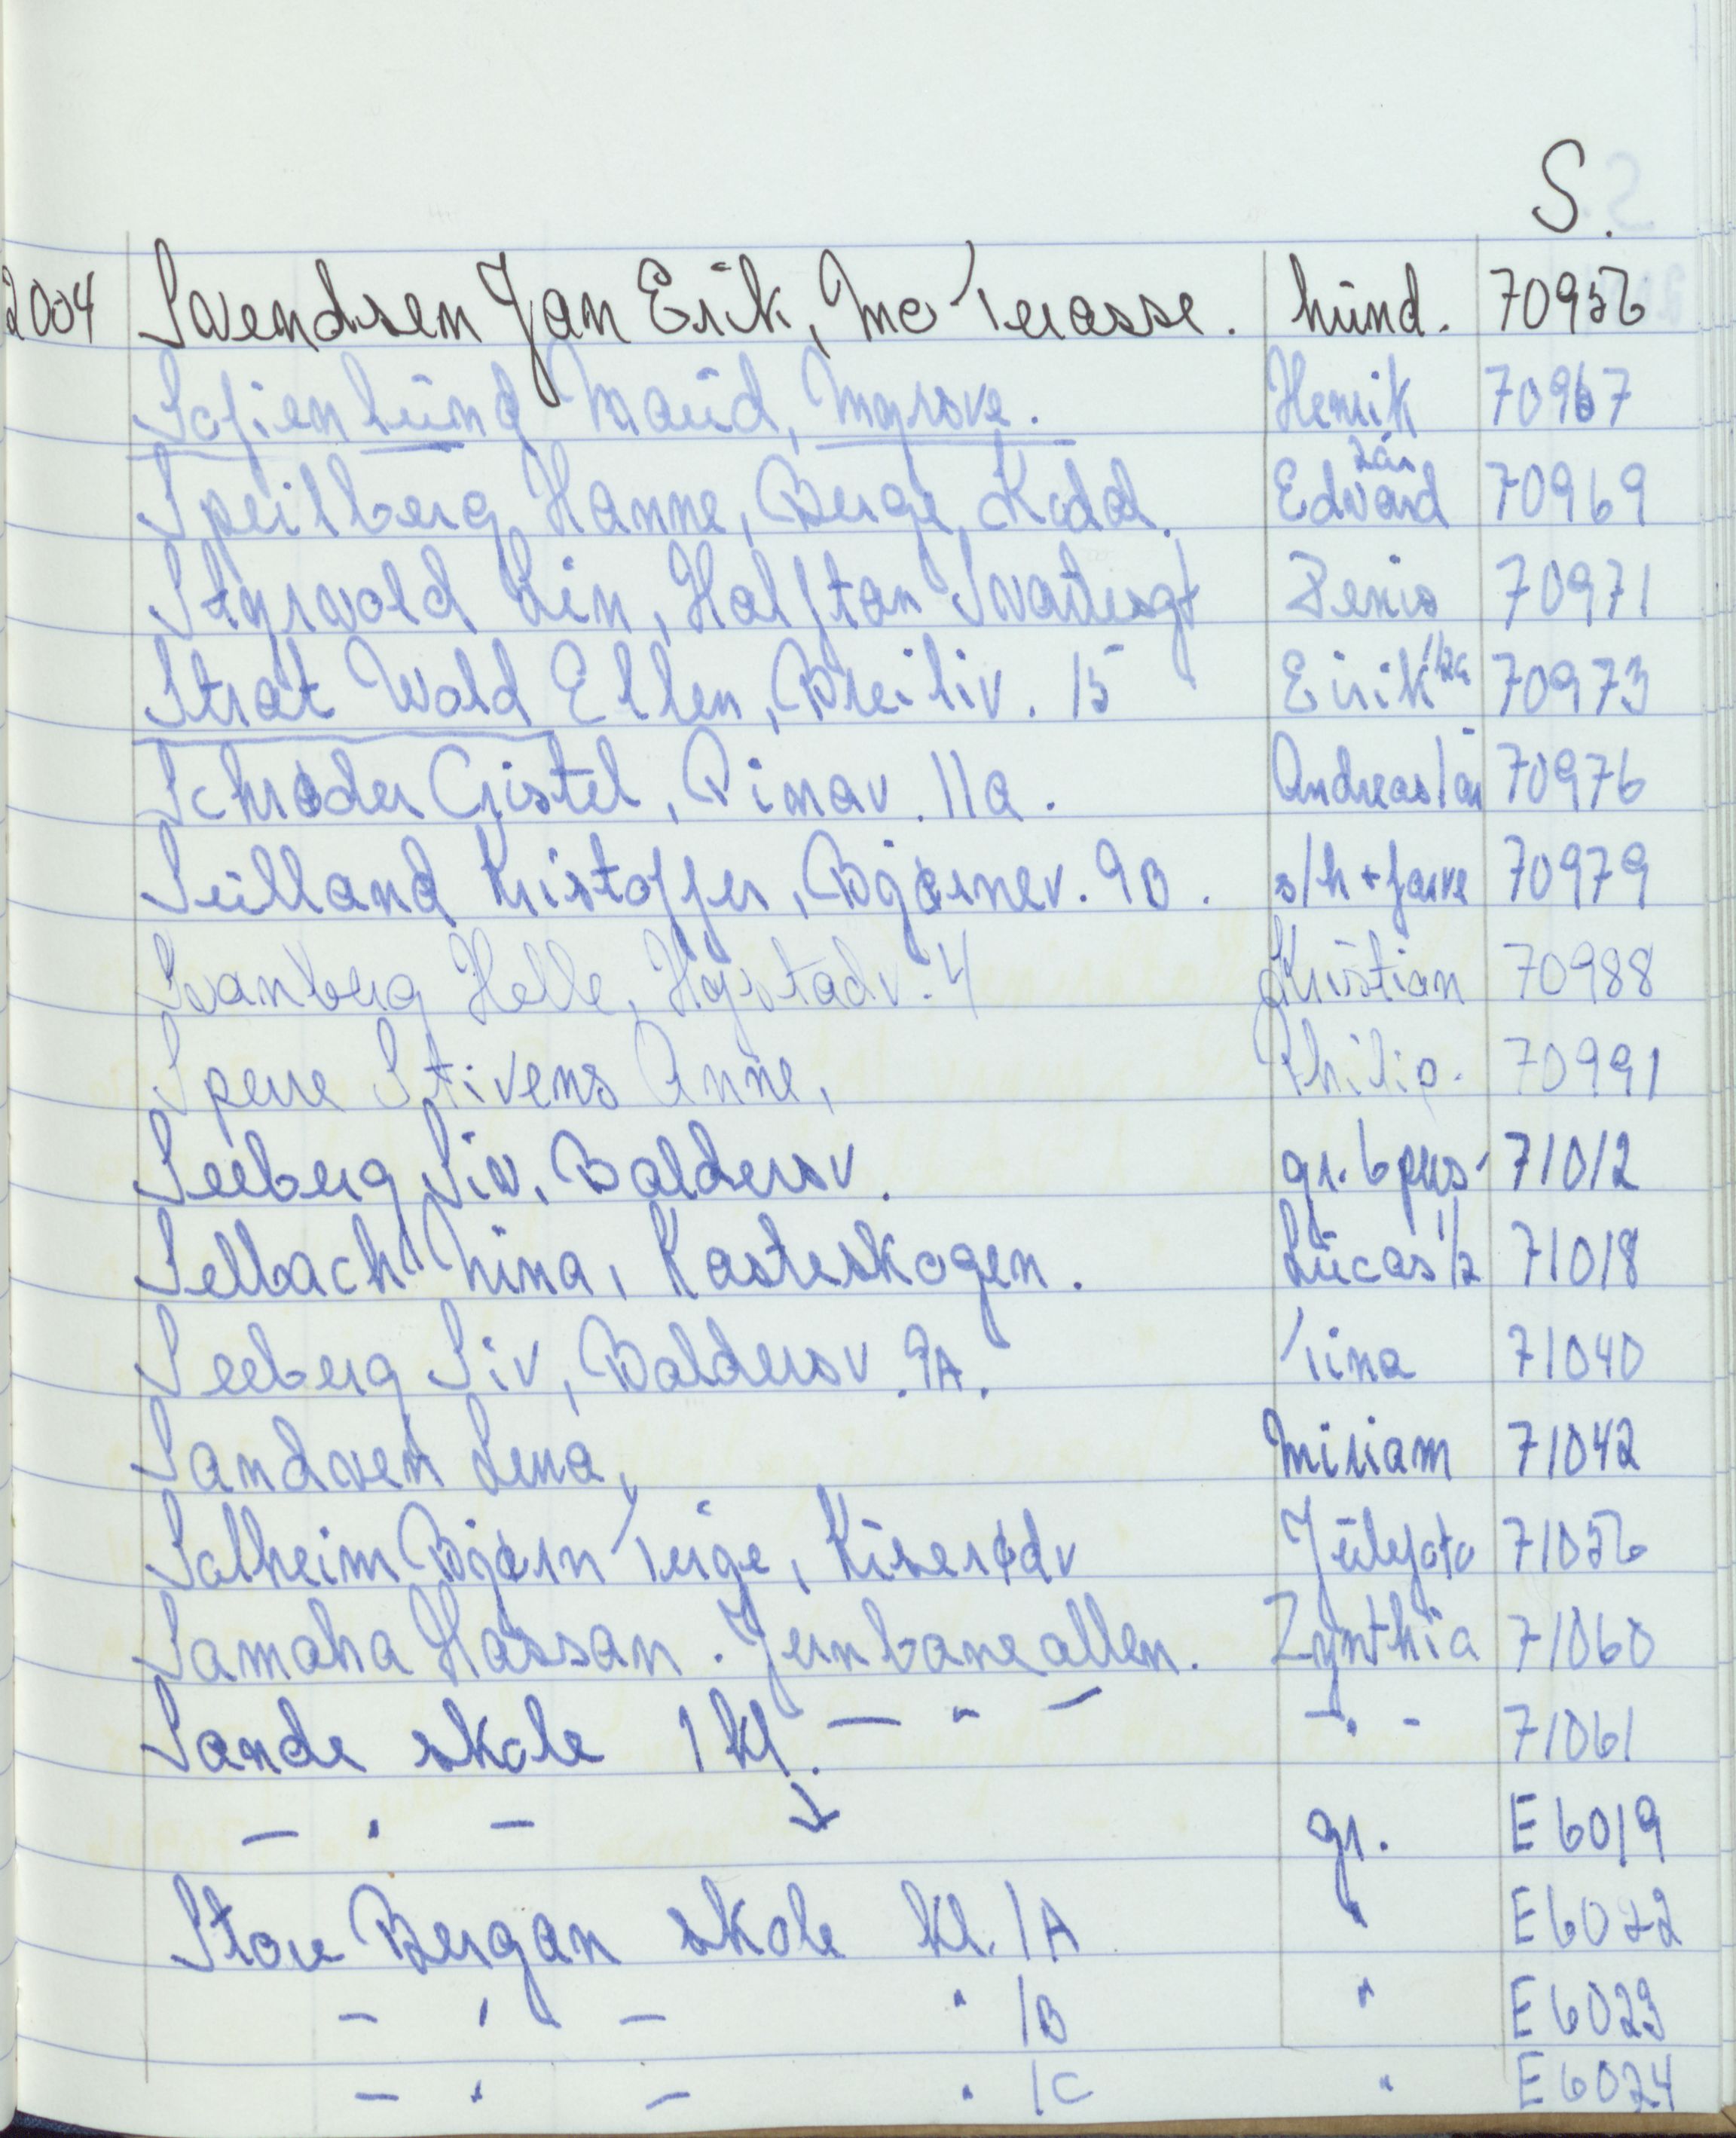 S.
2004 Svendsen Jan Erik, Mo Terasse. hund. 70956
Sofienlund Maud, Myrsve. Henrik 70967
Speilberg Hanne, Berge, Kodal. Edvard 2år 70969
Styrvold Lin, Halftan Svartesgt Denis 70971
Strat Wold Ellen, Breiliv. 15 Eirik 70973
Schrøder Cristel, Rimav. 11a. Andreas 1år 70976
Sulland Kristoffer, Bjørnev. 9B. s/h + farve 70979
Svanberg Helle, Hystadv. 4 Kristian 70988
Sperre Stivens Anne, Philip. 70991
Seeberg Siv, Baldersv. gr. 6 pers. 71012
Selbach Nina, Rasteskogen. Lucas 1/2 71018
Seeberg Siv, Baldersv. 9A. Tina 71040
Sandven Lena, Miriam 71042
Solheim Bjørn Terje, Kiserødv Julefoto 71056
Samaha Hassan. Jernbanealleen. Zynthia 71060
Sande skole 1 kl. — " — - " - 71061
— " — ↓ gr. E6019
Store Bergan skole kl. 1A " E6022
- " — " 1B " E6023
— " — " 1C " E6024